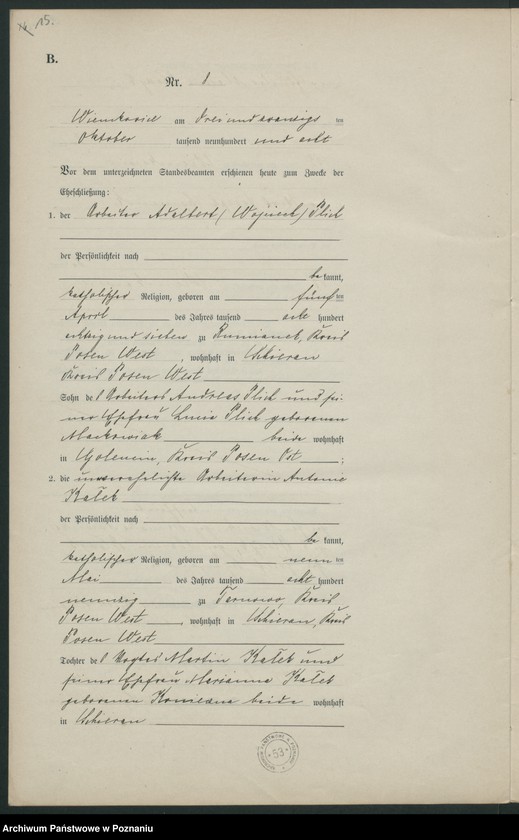 15.
B.
Nr. 1
am dreiundzwanzigsten
Oktober tausend neunhundert und acht
Vor dem unterzeichneten Standesbeamten erschienen heute zum Zwecke der
Eheschließung:
1. der Arbeiter Adalbert (Wojciech) Plich
der Persönlichkeit nach
bekannt,
katholischer Religion, geboren am fünften
April des Jahres tausend acht hundert
achtzig und sieben zu Rumianek, Kreis
Posen West, wohnhaft in
Kreis Posen West
Sohn des Arbeiters Andreas Plich und sei-
ner Ehefrau Lucie Plich geborenen
Mackowiak beide wohnhaft
in Kreis Posen Ost;
2. die unverehelichte Arbeiterin Antonie
Kaleb
der Persönlichkeit nach
bekannt,
katholischer Religion, geboren am neunten
Mai des Jahres tausend acht hundert
neunzig zu Tarnowo, Kreis
Posen West, wohnhaft in Kreis
Posen West
Tochter des Vogtes Martin Kaleb und
seiner Ehefrau Marianna Kaleb
geborenen beide wohnhaft
in
53
Archiwum Państwowe w Poznaniu